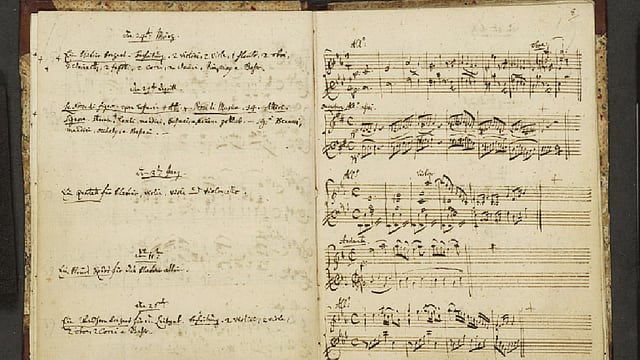 Den 24ten März.
Ein klavier konzert. begleitung. 2 violini, 2 viole, 1 flauto, 2 oboe,
2 clarinetti, 2 fagotti, 2 corni, 2 clarini, timpany e Baßo.
den 29ten April
le Nozze di figaro. opera buffa. in 4 Atti. Pezzi di musica. 34. Attori.
Signore storace, laschi, mandini, Bussani, e Nannina gottlieb. — Sigri Benucci,
mandini, occhely, e Bussani. —
Ein quartett für klavier, violin, viola und violoncello.
Ein kleines Rondò für das klavier allein.
Ein Waldhorn konzert für den leitgeb. begleitung. 2 violini, 2 viole,
2 oboe, 2 corni e Baßo.
All:o
oboe
All:o assai
All:o
violin
Andante
All:o